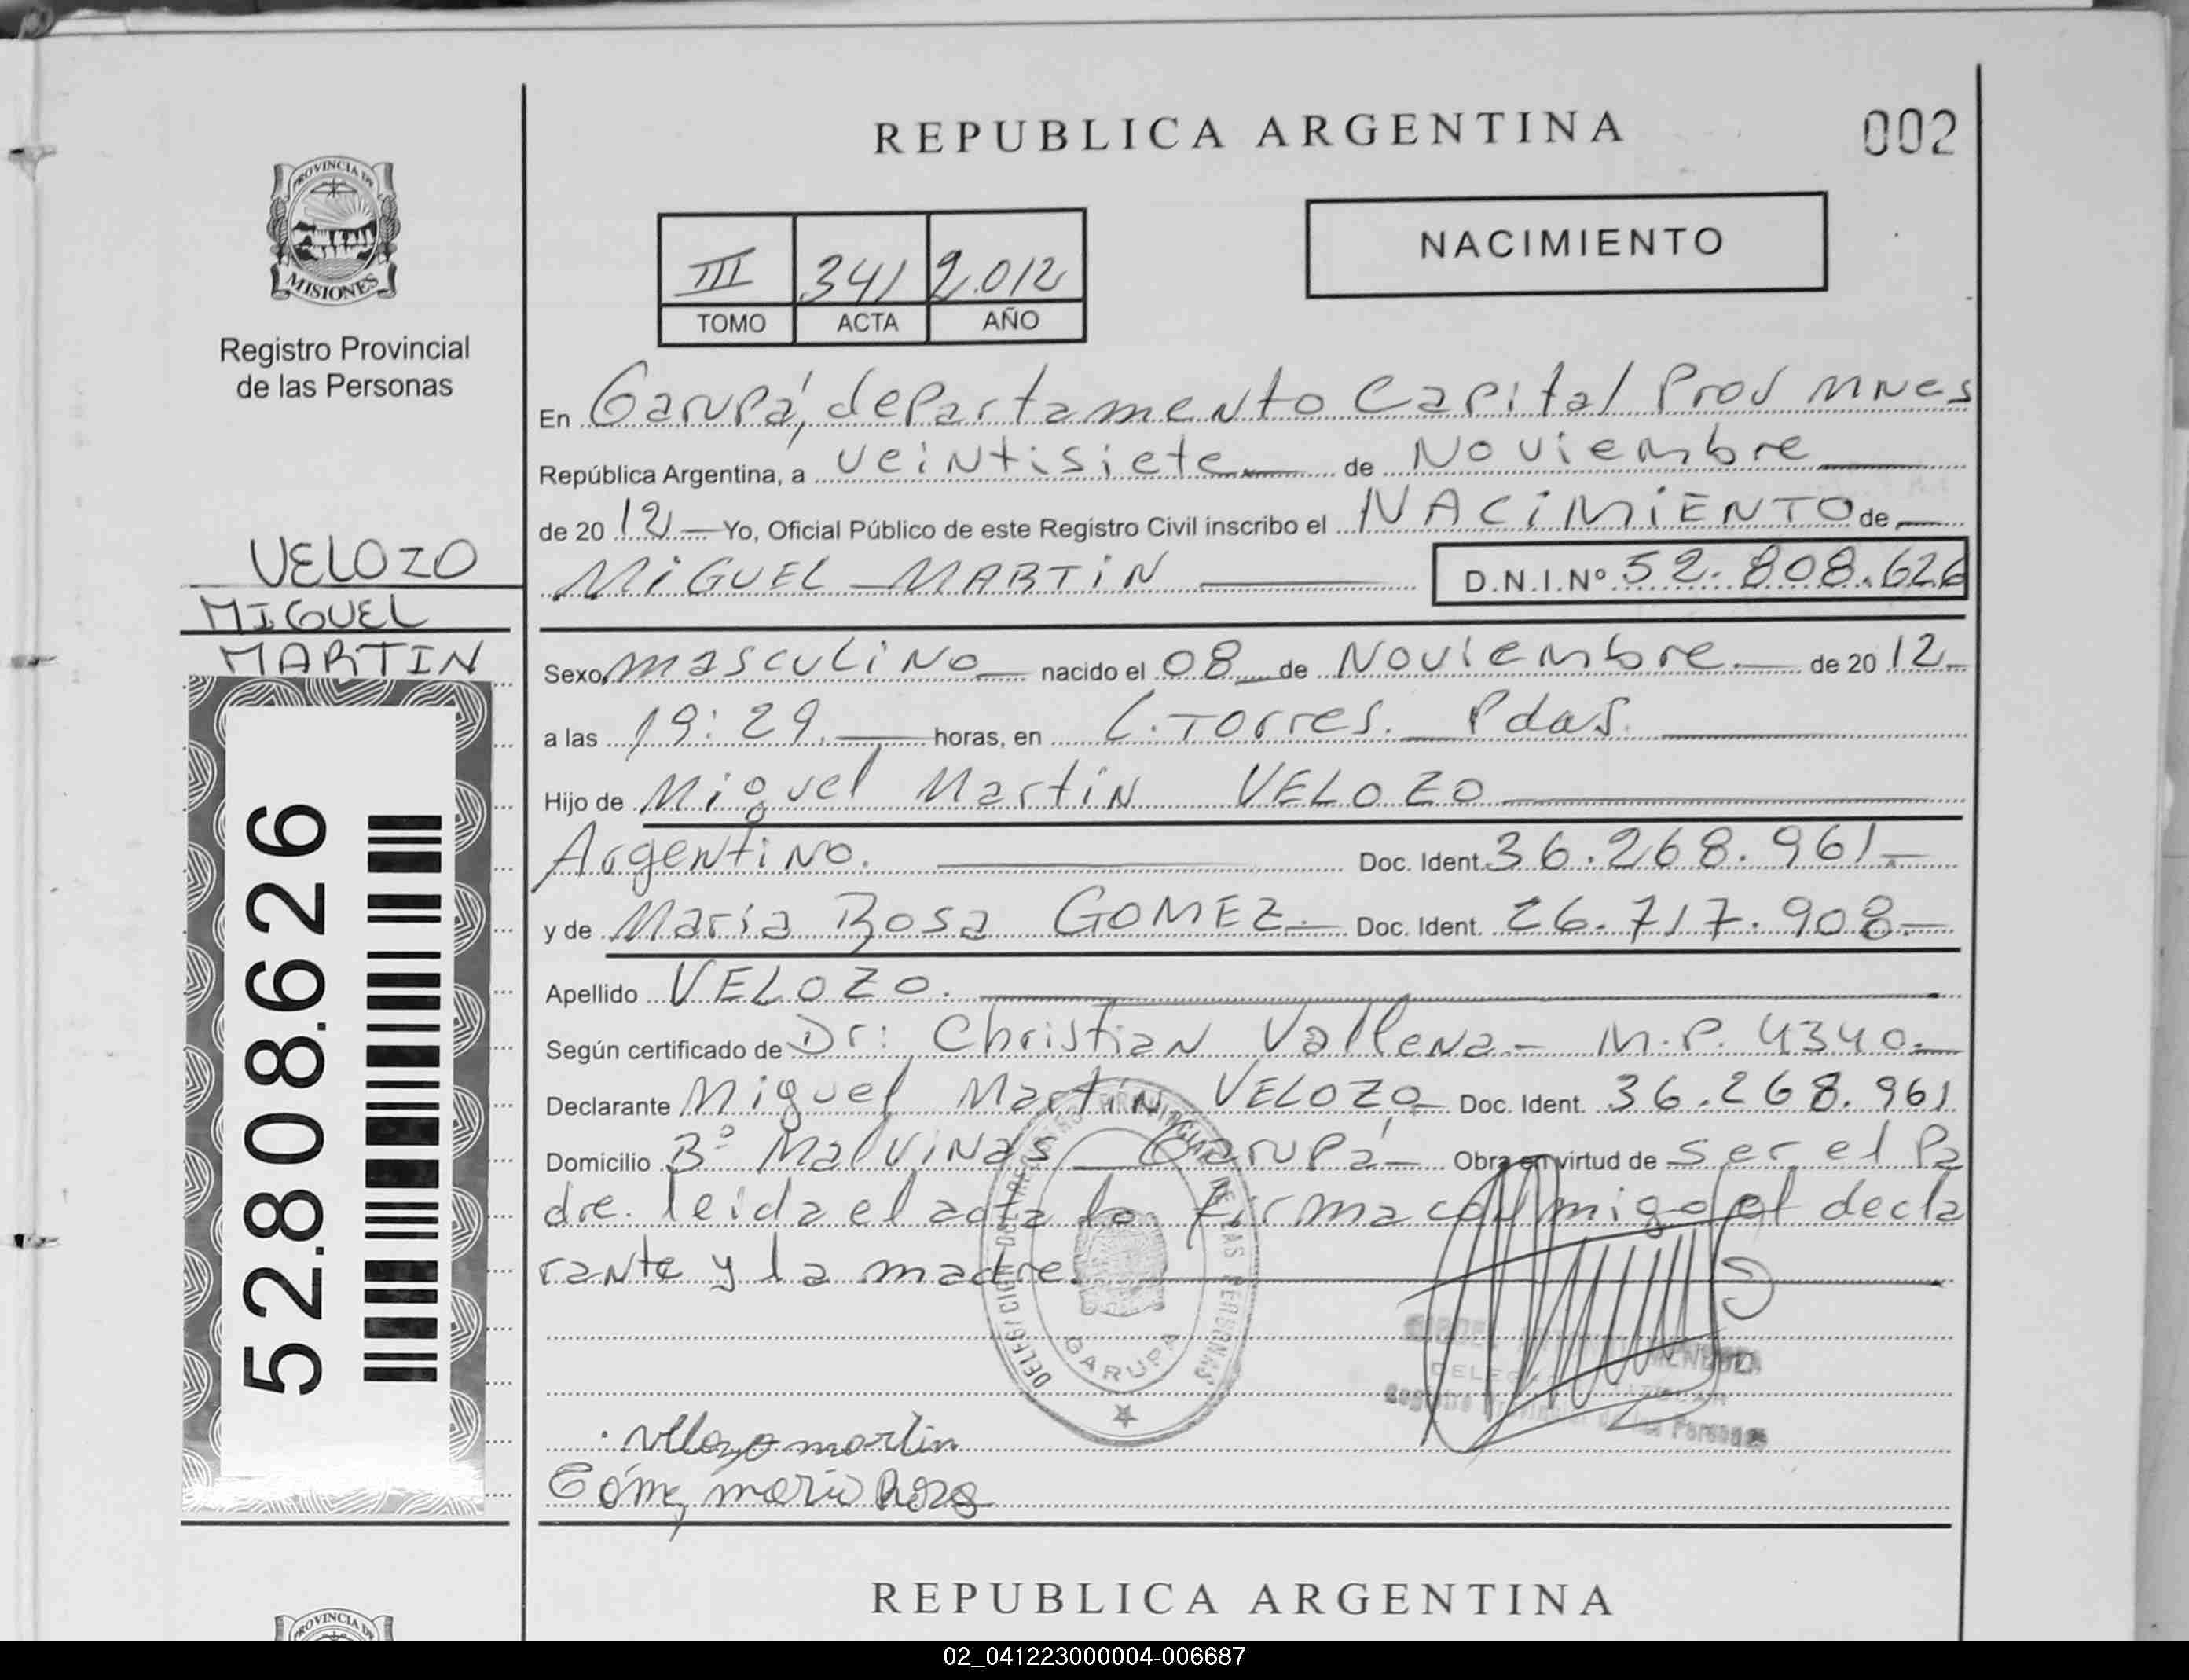 REPUBLICA ARGENTINA
002
PROVINCIA DE
MISIONES
Registro Provincial
de las Personas
III 341 2.012
TOMO ACTA AÑO
NACIMIENTO
En Garupá, departamento Capital Prov Mnes
República Argentina, a veintisiete de Noviembre
de 2012 Yo, Oficial Público de este Registro Civil inscribo el NACIMIENTO de
MIGUEL MARTIN D.N.I.Nº 52.808.626
VELOZO
MIGUEL
MARTIN
52.808.626
Sexo, masculino nacido el 08 de Noviembre de 2012
a las 19:29. horas, en C. Torres. Pdas.
Hijo de Miguel Martin VELOZO
Argentino. Doc. Ident. 36.268.961
y de Maria Rosa GOMEZ Doc. Ident. 26.717.908
Apellido VELOZO.
Según certificado de Dr: Christian Vallena - M.P. 4340
Declarante Miguel Martin VELOZO Doc. Ident. 36.268.961
Domicilio Bº Malvinas - Garupá Obra en virtud de ser el Pa
dre. leida el acta la firma conmigo el decla
rante y la madre.
DELEGACION DEL REGISTRO PROVINCIAL DE LAS PERSONAS
GARUPA
Registro Provincial de las Personas
velozo martin
Gómez maria Rosa
REPUBLICA ARGENTINA
PROVINCIA DE
02_041223000004-006687